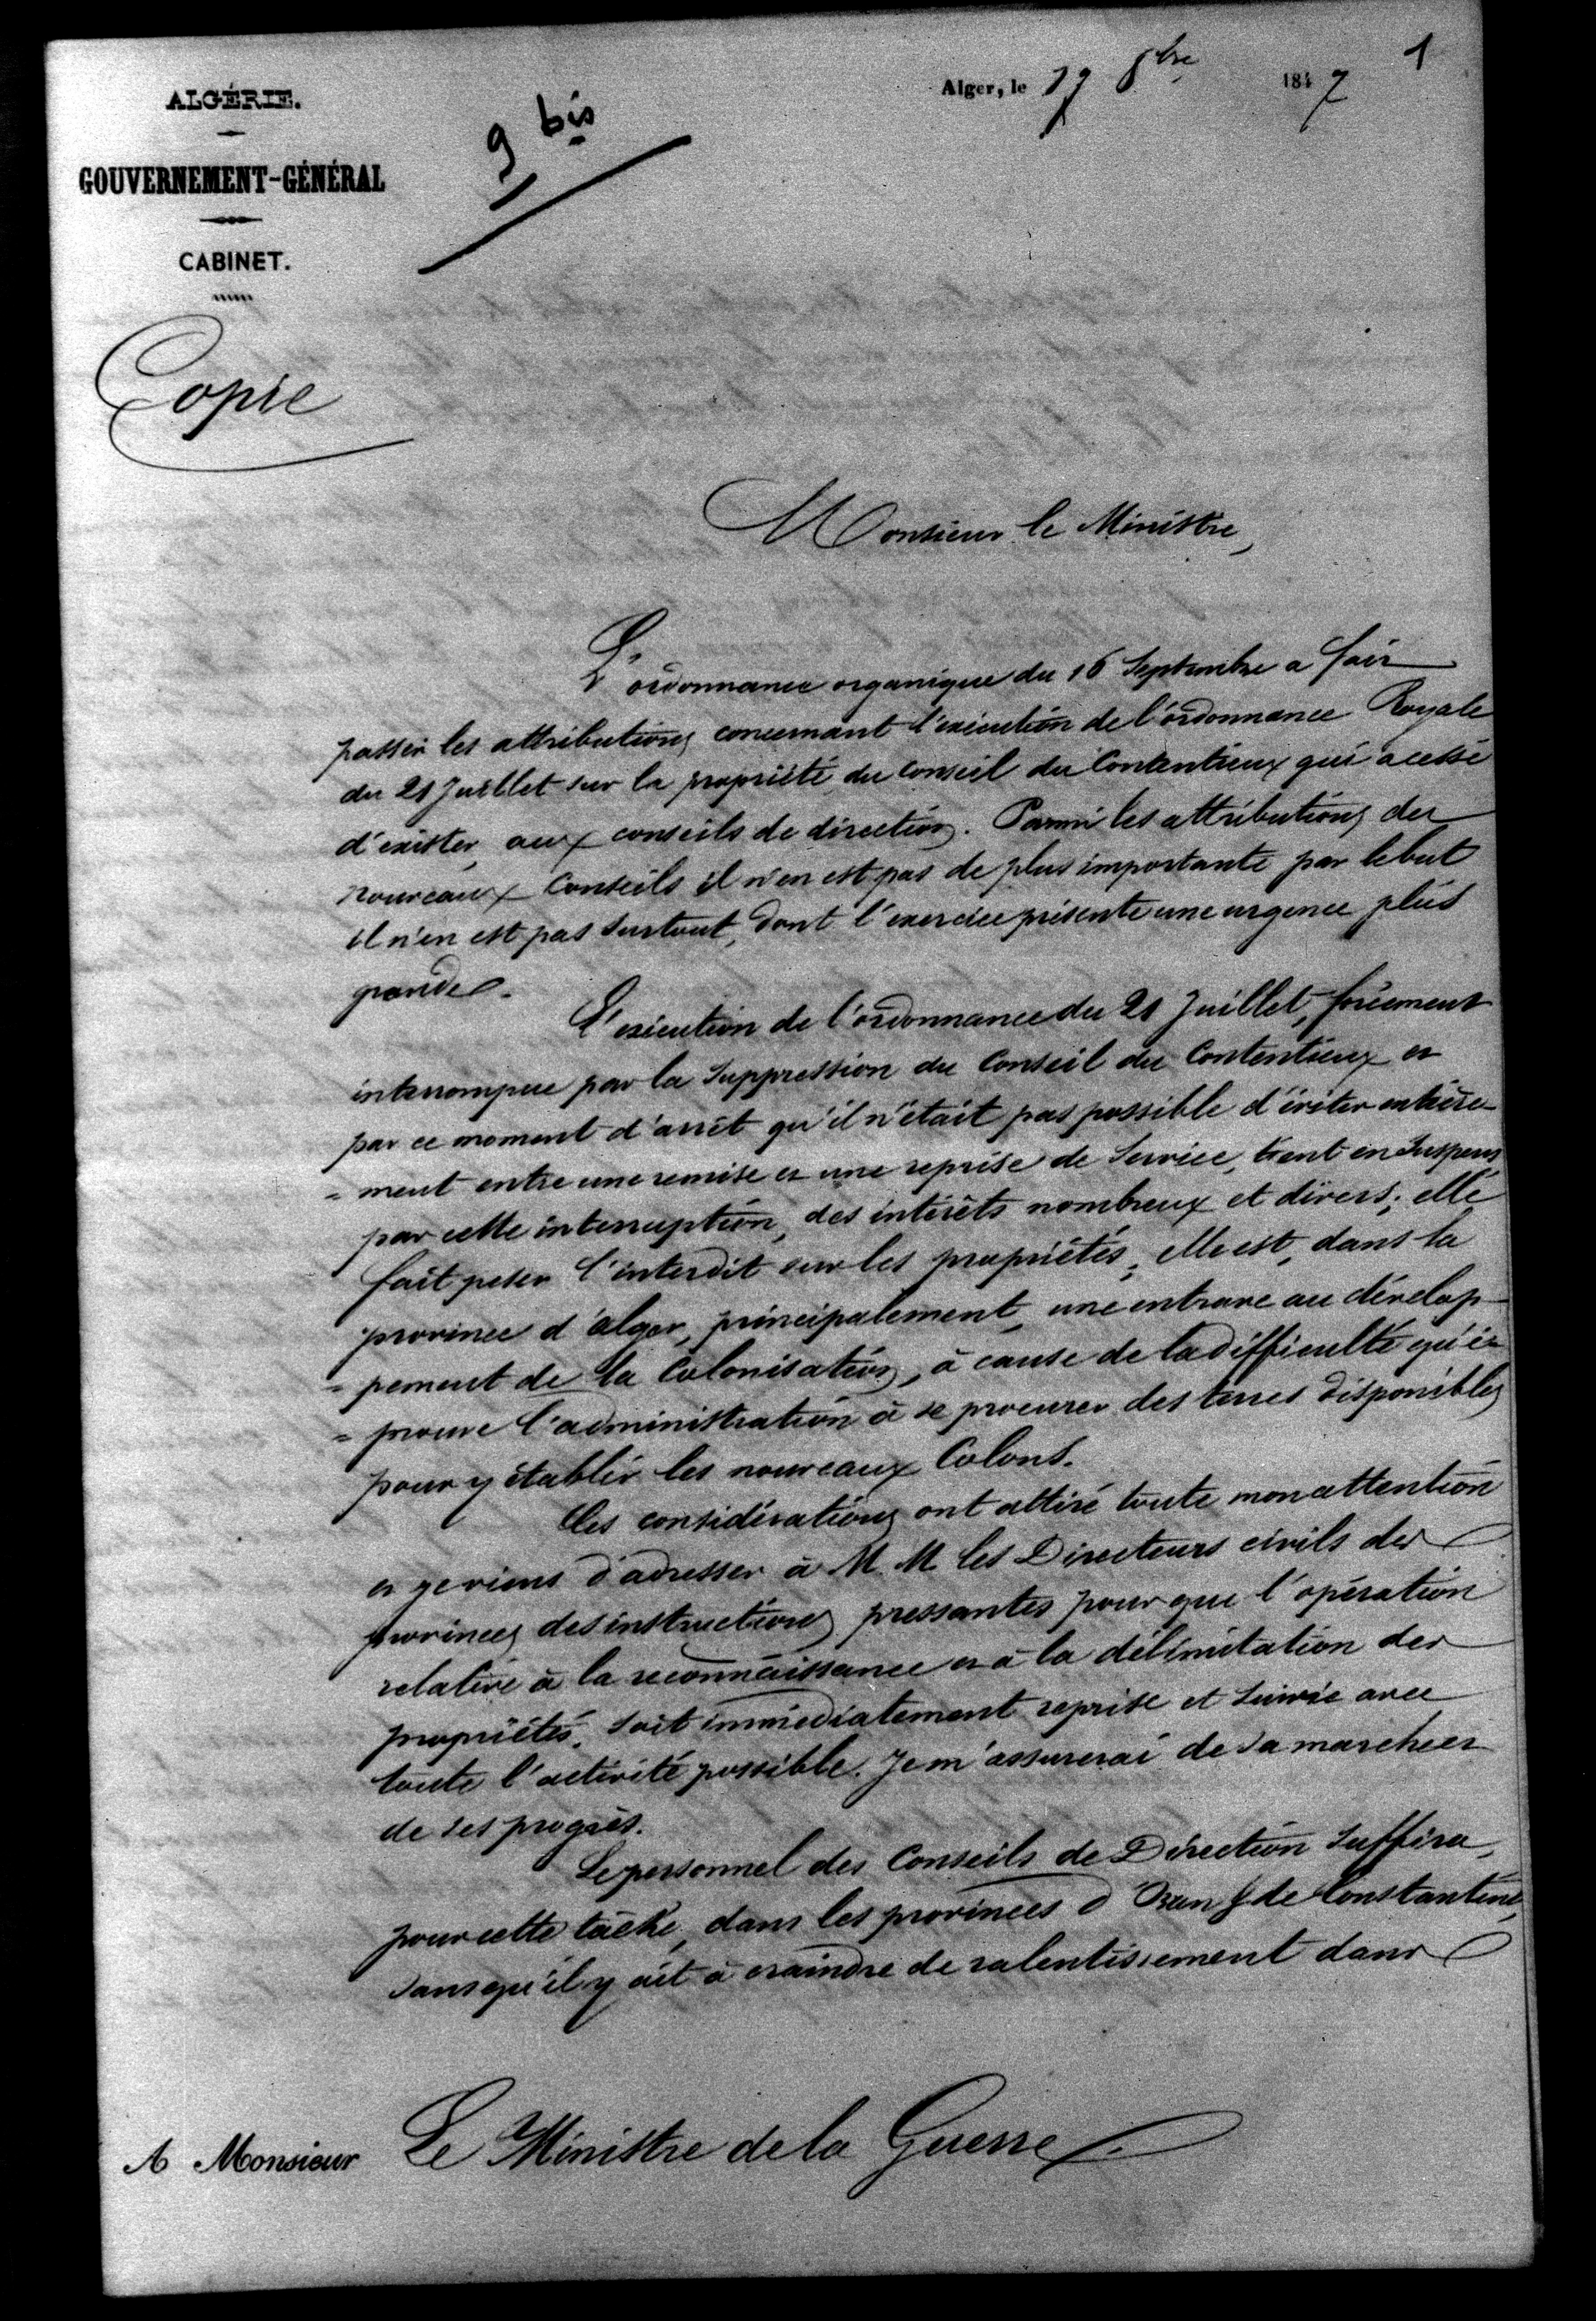 1
Alger, le 8bre 1847
ALGÉRIE.
9 bis
GOUVERNEMENT-GÉNÉRAL
CABINET.
Copie
Monsieur le Ministre,
L'ordonnance organique du 16 Septembre a fait
passer les attributions concernant l'exécution de l'ordonnance Royale
du 21 Juillet sur la propriété du Conseil du Contentieux qui a cessé
d'exister, aux conseils de direction. Parmi les attributions des
nouveaux Conseils il n'en est pas de plus importante par le but
il n'en est pas surtout, dont l'exercice présente une urgence plus
grande.
L'exécution de l'ordonnance du 21 Juillet, forcément
interrompue par la suppression du Conseil du Contentieux et
par ce moment d'arrêt qu'il n'était pas possible d'éviter entière-
=ment entre une remise et une reprise de Service, tient en suspens
par cette interruption, des intérêts nombreux et divers; elle
fait peser l'interdit sur les propriétés, elle est, dans la
province d'alger, principalement, une entrave au dévelop-
=pement de la Colonisation, à cause de la difficulté qu'é-
=prouve l'administration à se procurer des terres disponibles
pour y établir les nouveaux Colons.
Ces considérations ont attiré toute mon attention
et je viens d'adresser à M.M les Directeurs civils des
provinces des instructions pressantes pour que l'opération
relative à la reconnaissance et à la délimitation des
propriétés, soit immédiatement reprise et suivie avec
toute l'activité possible. Je m'assurerai de sa marche et
de ses progrès.
Le personnel des Conseils de Direction suffira,
pour cette tâche, dans les provinces d'Oran & de Constantine,
sans qu'il y ait à craindre de ralentissement dans
A Monsieur Le Ministre de la Guerre